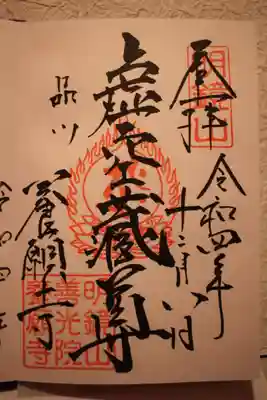 奉拝
令和四年
十二月八日
虚空藏尊
品川
養願寺
明鏡山
善光院
養願寺